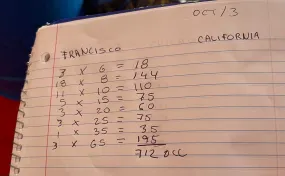 OCT/3
FRANCISCO CALIFORNIA
3 X 6 = 18
18 X 8 = 144
11 X 10 = 110
5 X 15 = 75
3 X 20 = 60
3 X 25 = 75
1 X 35 = 35
3 X 65 = 195
712 DCC